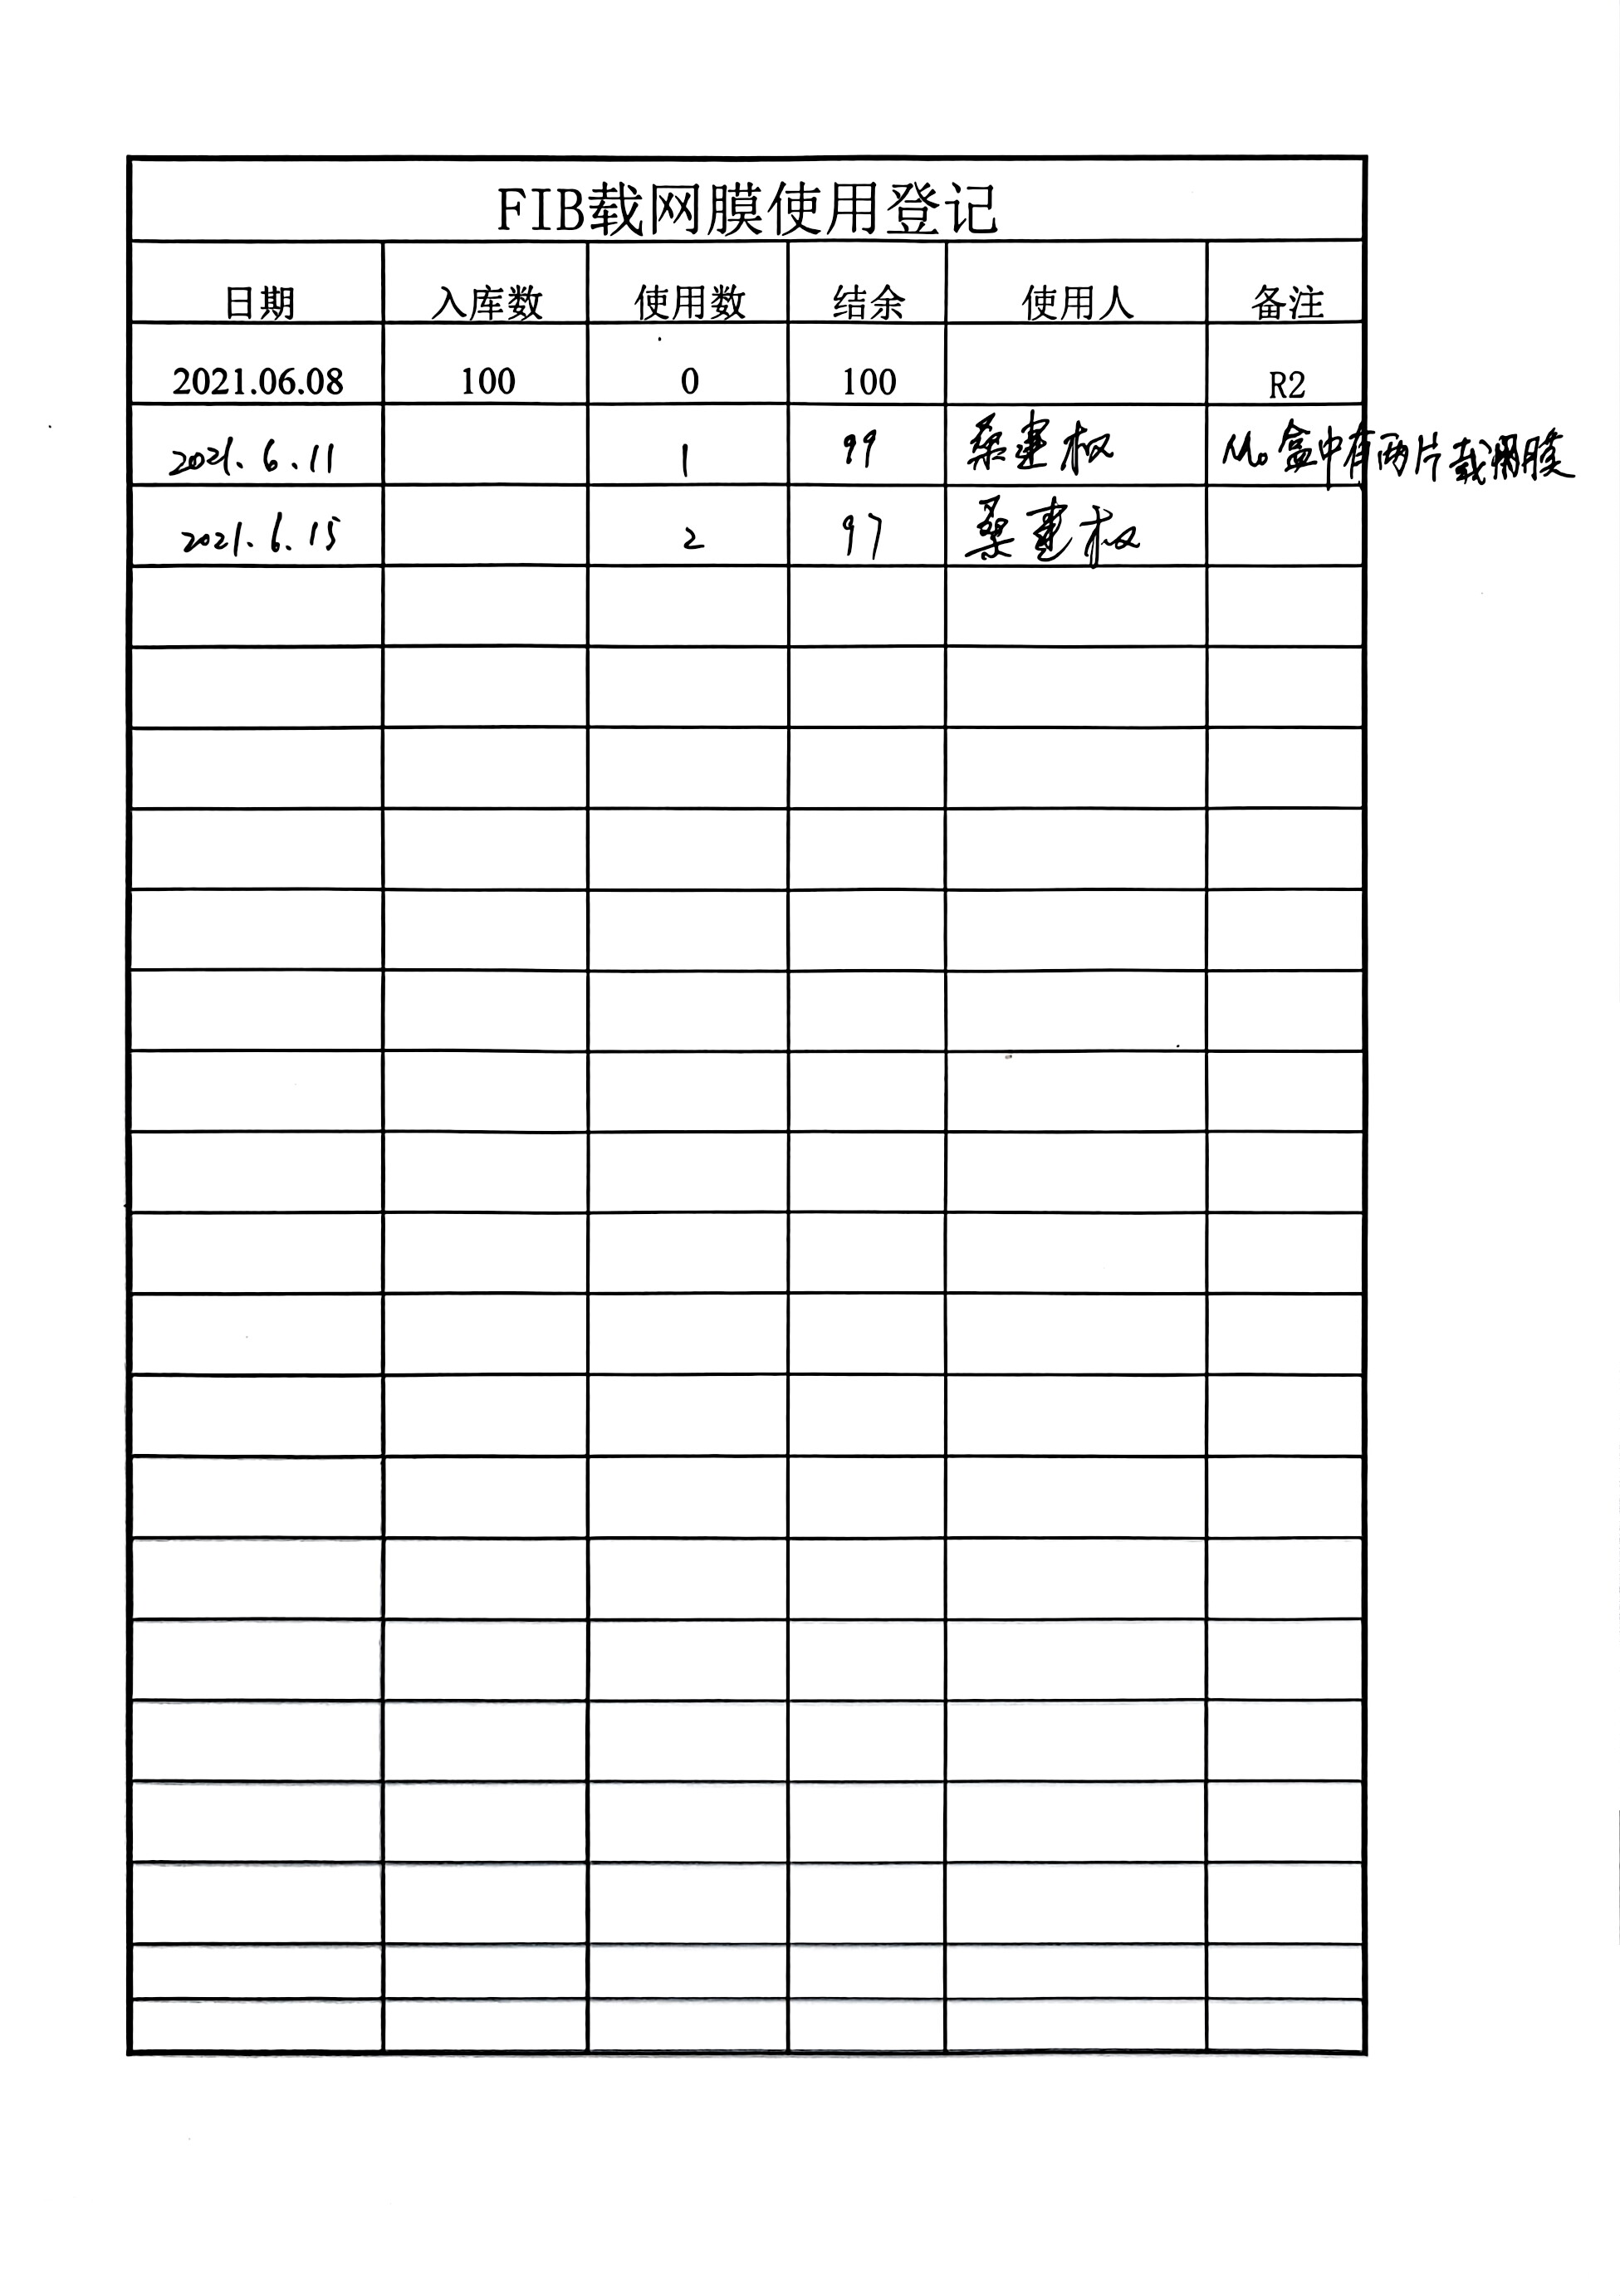 FIB载网膜使用登记
日期 入库数 使用数 结余 使用人 备注
2021.06.08 100 0 100 R2
2021.6.11 1 99 桑建权 Mo盒中有两片载网膜
2021.6.15 2 97 桑建权